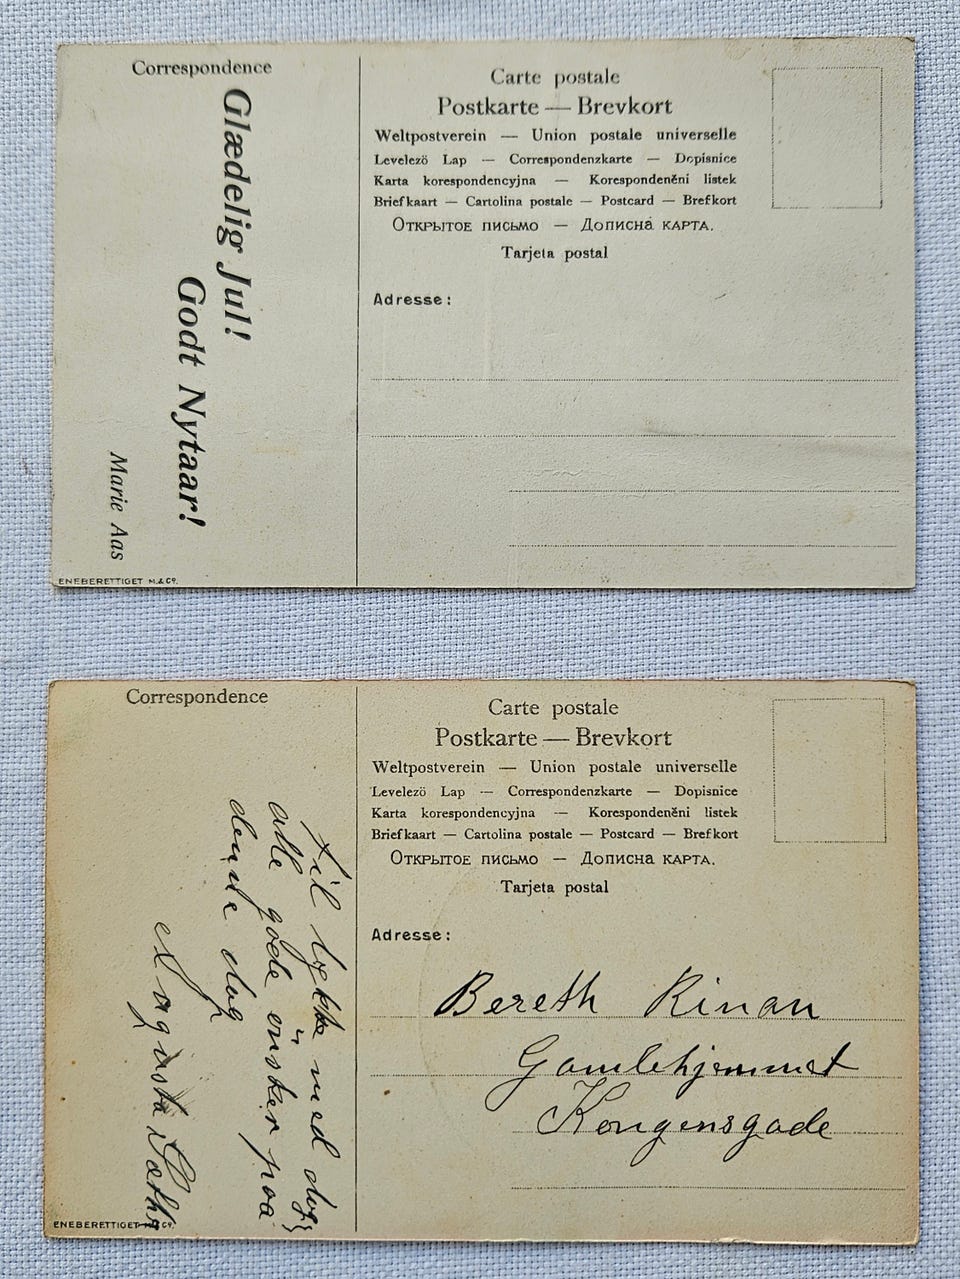 Correspondence
Glædelig Jul!
Godt Nytaar!
Marie Aas
ENEBERETTIGET M.& Co.
Carte postale
Postkarte — Brevkort
Weltpostverein — Union postale universelle
Levelező Lap — Correspondenzkarte — Dopisnice
Karta korespondencyjna — Korespondenční listek
Briefkaart — Cartolina postale — Postcard — Brefkort
Открытое письмо — Дописна карта.
Tarjeta postal
Adresse:
Correspondence
til lykke med dag
alle gode önsker paa
denne dag
ENEBERETTIGET Co.
Carte postale
Postkarte — Brevkort
Weltpostverein — Union postale universelle
Levelező Lap — Correspondenzkarte — Dopisnice
Karta korespondencyjna — Korespondenční listek
Briefkaart — Cartolina postale — Postcard — Brefkort
Открытое письмо — Дописна карта.
Tarjeta postal
Adresse:
Bereth Rinan
Gamlehjemmet
Kongensgade